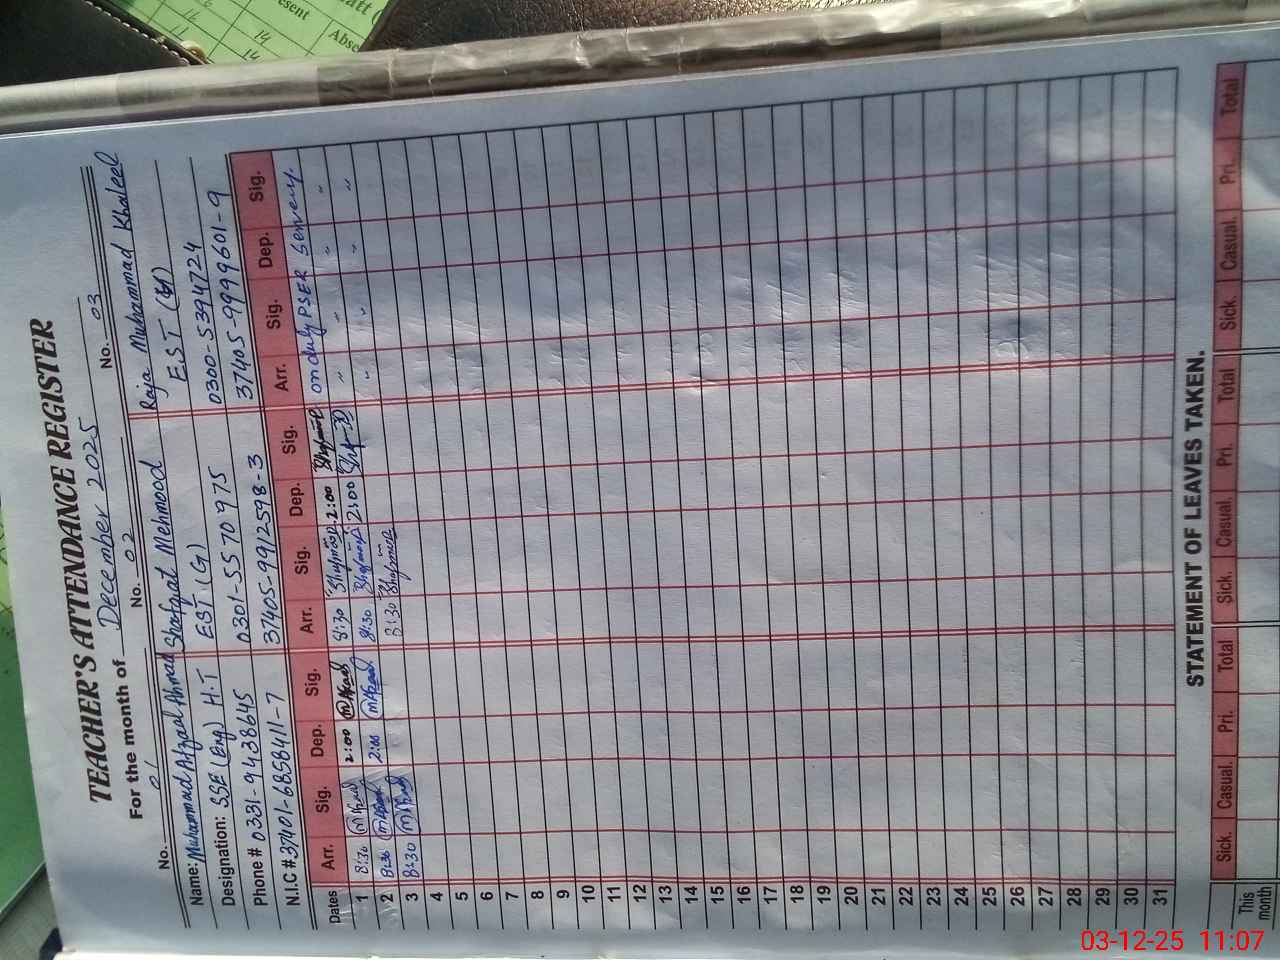 esent
Abse
16
14
14
TEACHER'S ATTENDANCE REGISTER
For the month of December 2025
No. 01 No. 02 No. 03
Name: Muhammad Afzaal Ahmad Shafqat Mehmood Raja Muhammad Khaleel
Designation: SSE (Eng) H.T EST (G) EST (M)
Phone # 0331-9438645 0301-5570975 0300-5394724
N.I.C # 37401-6858411-7 37405-9912598-3 37405-9999601-9
Dates Arr. Sig. Dep. Sig. Arr. Sig. Dep. Sig. Arr. Sig. Dep. Sig.
1 8:30 2:00 8:30 2:00 on duty PSER Servery
2 8:30 2:00 8:30 2:00 " " " "
3 8:30 8:30 " " " "
4
5
6
7
8
9
10
11
12
13
14
15
16
17
18
19
20
21
22
23
24
25
26
27
28
29
30
31
STATEMENT OF LEAVES TAKEN.
Sick. Casual. Pri. Total Sick. Casual. Pri. Total Sick. Casual. Pri. Total
This month
03-12-25 11:07